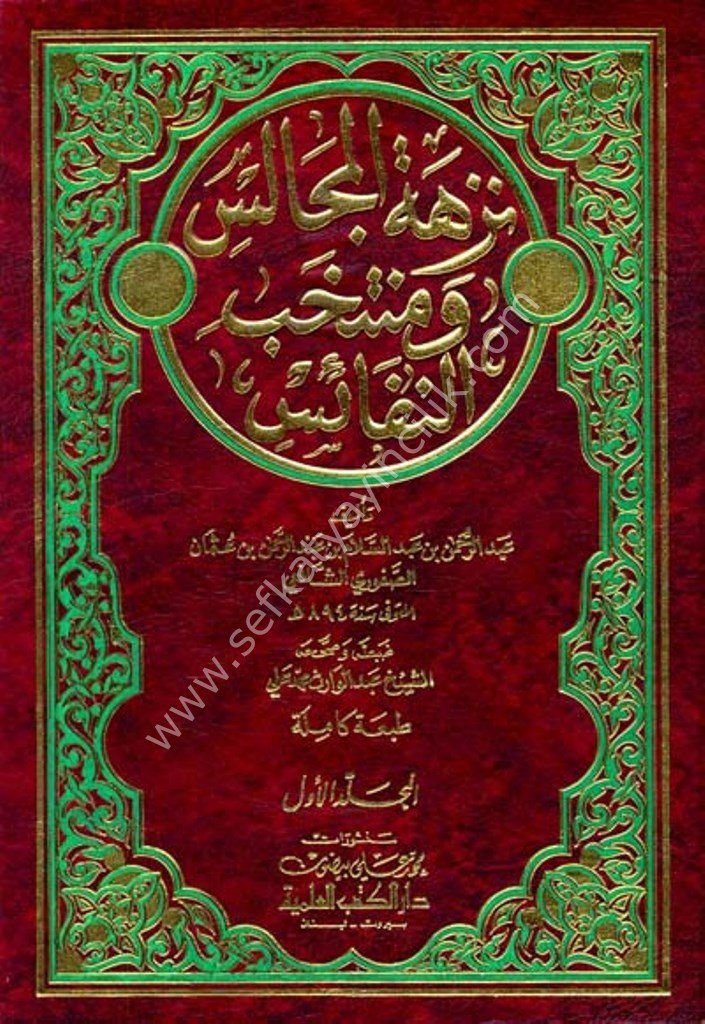 نزهة المجالس
ومنتخب
النفائس
تأليف
عبد الرحمن بن عبد السلام بن عبد الرحمن بن عثمان
الصفوري الشافعي
المتوفى سنة ٨٩٤ هـ
ضبطه وصححه
الشيخ عبد الوارث محمد علي
طبعة كاملة
المجلد الأول
منشورات
محمد علي بيضون
دار الكتب العلمية
بيروت - لبنان
www.sefkatyayincilik.com